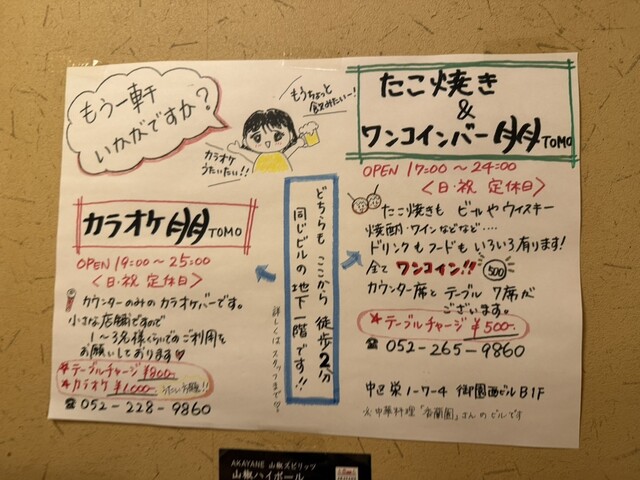 もう一軒
いかがですか?
もうちょっと
飲みたいー!
カラオケ
うたいたい!!
カラオケ 朋 TOMO
OPEN 19:00～25:00
<日・祝 定休日>
カウンターのみのカラオケバーです。
小さな店舗ですので
1～3名様くらいでのご利用を
お願いしております♡
*テーブルチャージ ¥800-
*カラオケ ¥1,000- うたいたい放題!!
☎052-228-9860
どちらもここから徒歩2分
同じビルの地下一階です!!
詳しくはスタッフまで♡
たこ焼き
&
ワンコインバー 朋 TOMO
OPEN 17:00～24:00
<日・祝 定休日>
たこ焼きも ビールやウィスキー
焼酎・ワインなどなど....
ドリンクもフードもいろいろ有ります!
全て ワンコイン!! 500
カウンター席とテーブル 7席が
ございます。
*テーブルチャージ ¥500-
☎052-265-9860
中区栄1-7-4 御園西ビルB1F
元中華料理「香蘭園」さんのビルです
AKAYANE 山椒スピリッツ
山椒ハイボール